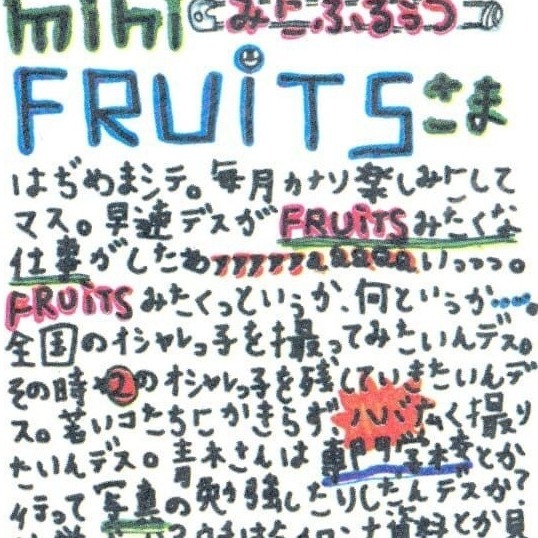 mini みにふるうつ
FRUiTSさま
はぢめまシテ。毎月カナソ楽しみにして
マス。早速デスが FRUiTSみたくな
仕事がしたぁァァァァァァaaaaaいっっっ。
FRUiTSみたくっというか、何というか…。
全国のオシャレっ子を撮ってみたいんデス。
その時々のオシャレっ子を残していきたいんデ
ス。若いコたちにかきらずハバ広く撮り
たいんデス。青木さんは専門学校とか
行って写真の勉強したりしたんデスか?